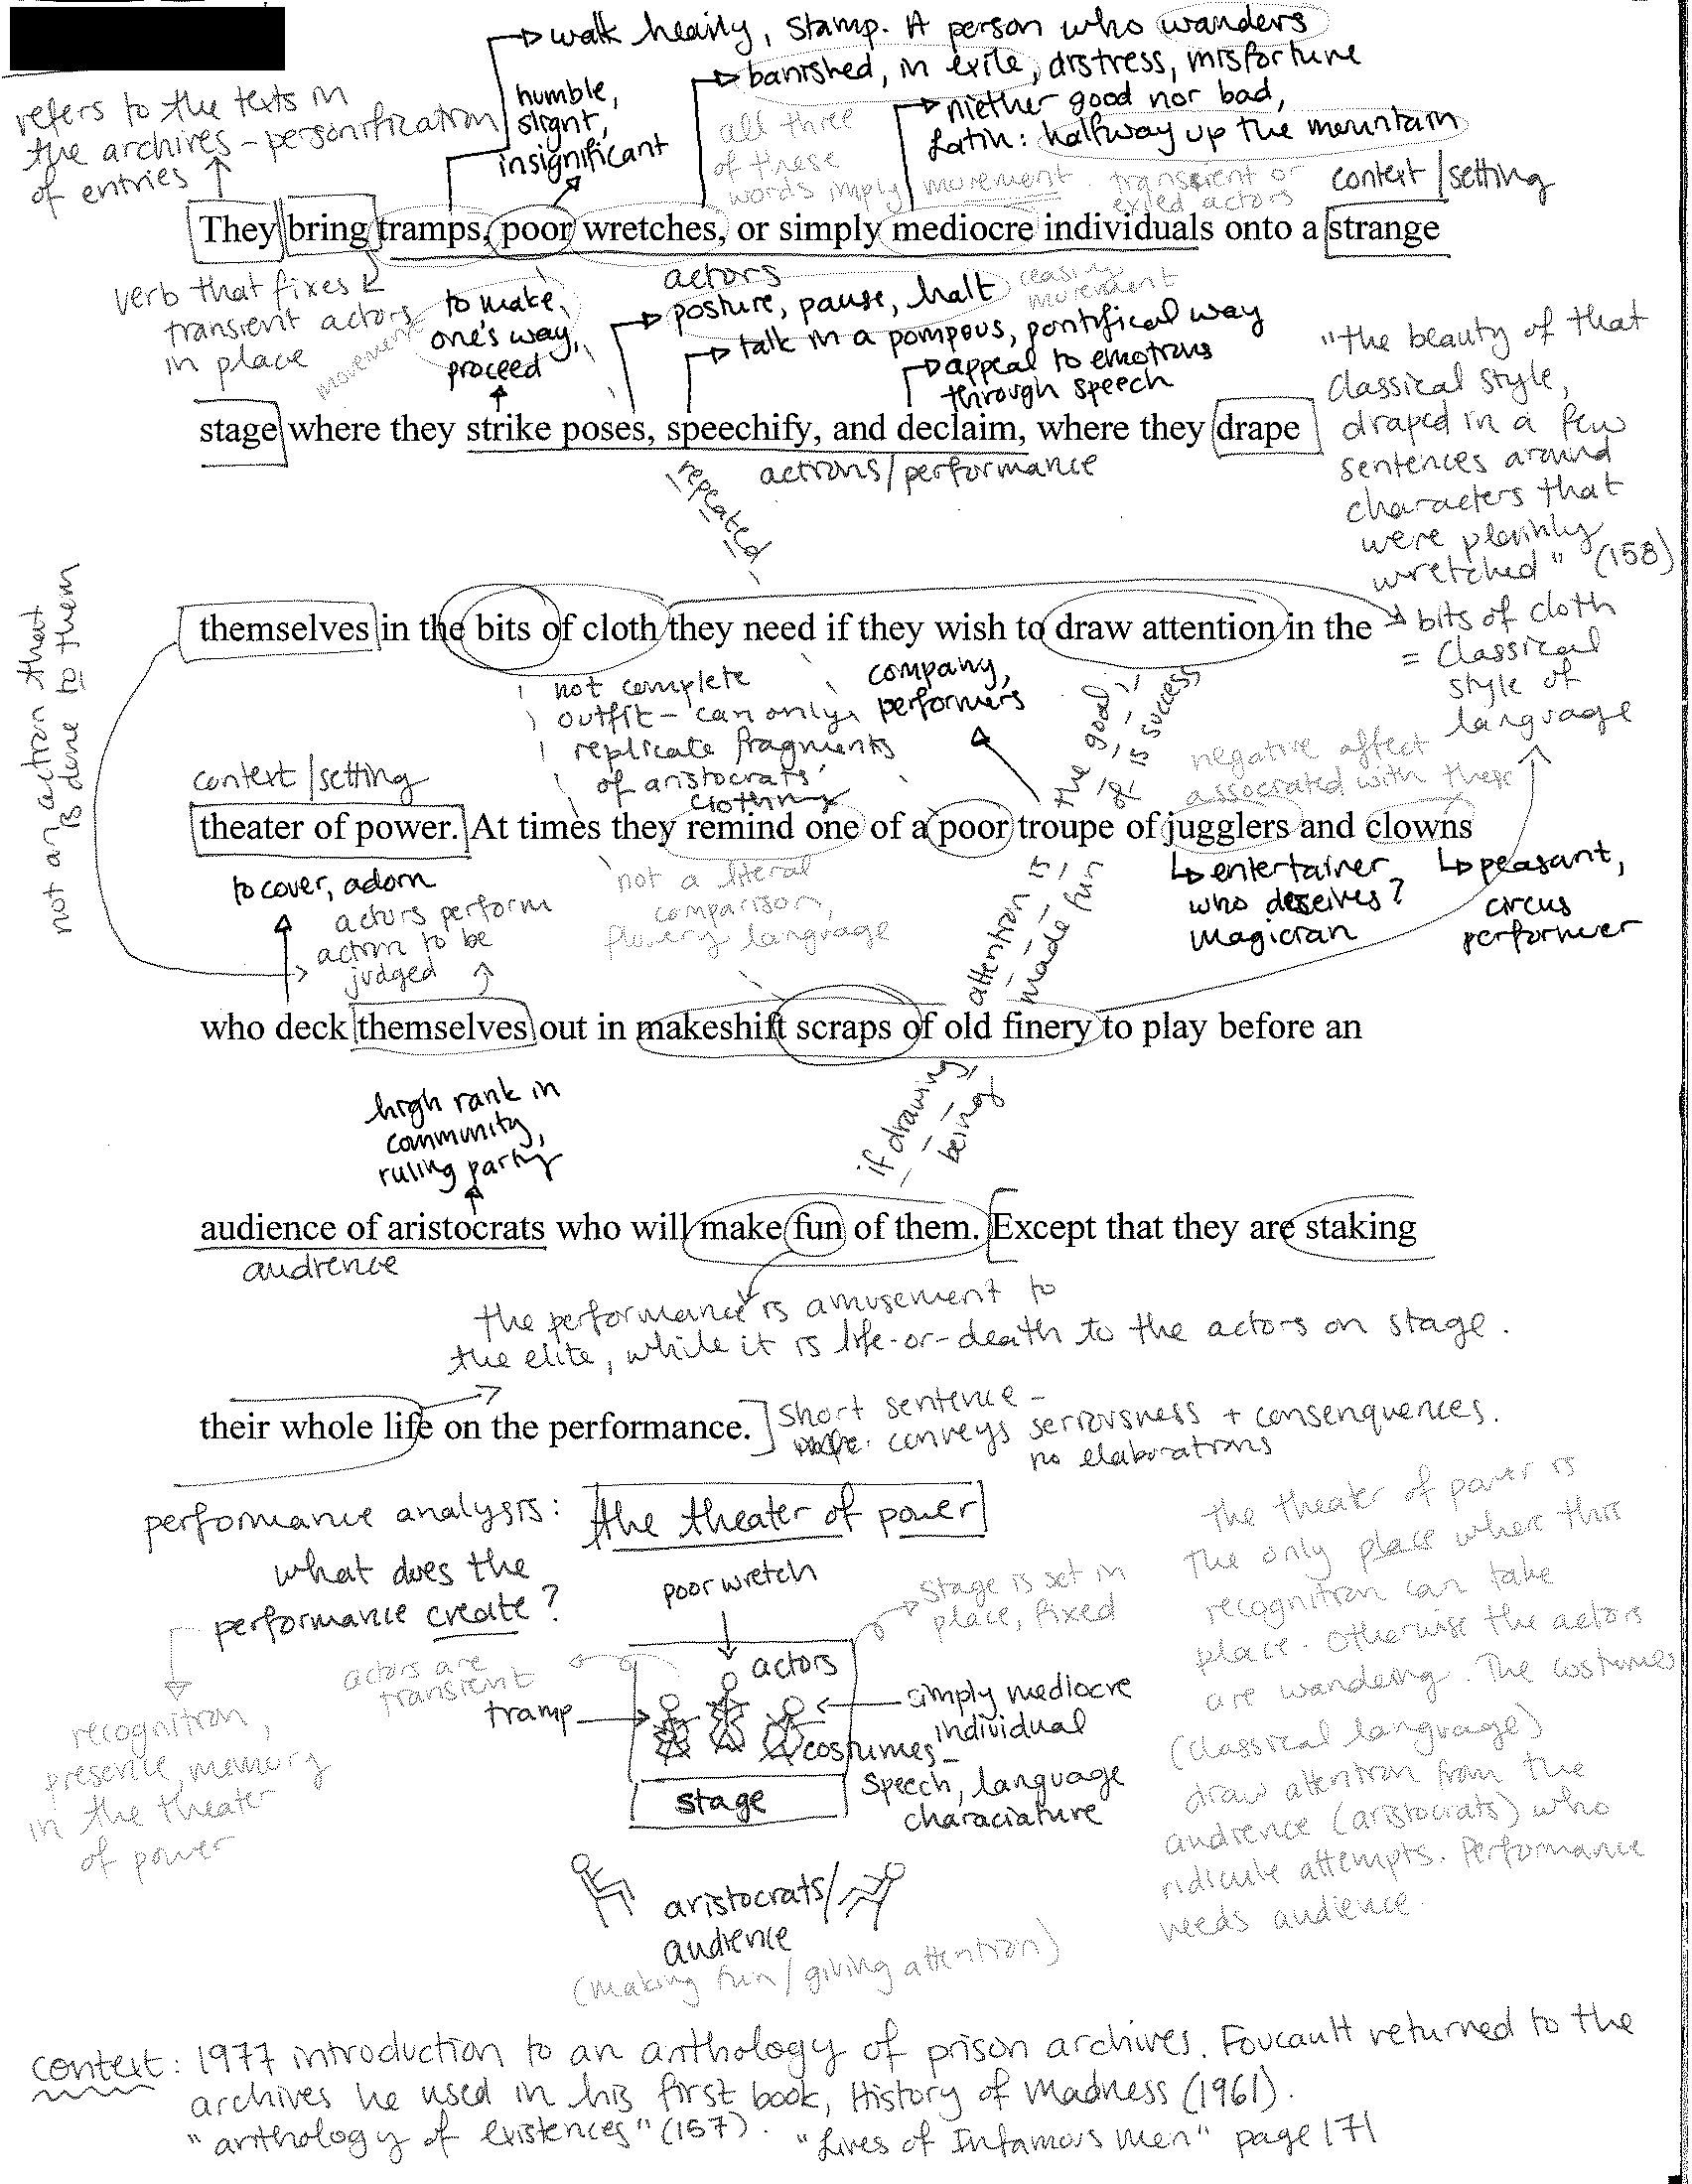 walk heavily, stamp. A person who wanders
banished, in exile, distress, misfortune
humble,
slight,
insignificant
niether good nor bad,
Latin: halfway up the mountain
refers to the texts in
the archives – personification
of entries
all three
of these
words imply movement. transient or
exiled actors
context/setting
They bring tramps, poor wretches, or simply mediocre individuals onto a strange
verb that fixes
transient actors
in place
movement
to make
one's way,
proceed
actors
posture, pause, halt
ceasing
movement
talk in a pompous, pontifical way
appeal to emotions
through speech
stage where they strike poses, speechify, and declaim, where they drape
actions/performance
repeated
"the beauty of that
classical style,
draped in a few
sentences around
characters that
were plainly
wretched" (158)
themselves in the bits of cloth they need if they wish to draw attention in the
not an action that
is done to them
bits of cloth
= classical
style of
language
not complete
outfit – can only
replicate fragments
of aristocrats'
clothing
company,
performers
the goal
is success
negative affect
associated with these
context/setting
theater of power. At times they remind one of a poor troupe of jugglers and clowns
to cover, adorn
actors perform
action to be
judged
not a literal
comparison,
flowery language
entertainer
who deseives?
magician
peasant,
circus
performer
who deck themselves out in makeshift scraps of old finery to play before an
if drawing attention is
being made fun
high rank in
community,
ruling party
audience of aristocrats who will make fun of them. Except that they are staking
audience
the performance is amusement to
the elite, while it is life-or-death to the actors on stage.
their whole life on the performance.
short sentence –
conveys seriousness + consenquences.
no elaborations
performance analysis: the theater of power
what does the
performance create?
recognition,
presence, memory
in the theater
of power
actors are
transient
poor wretch
stage is set in
place, fixed
actors
tramp
simply mediocre
individual
costumes –
speech, language
characiature
stage
aristocrats/
audience
(making fun/giving attention)
the theater of power is
the only place where this
recognition can take
place. Otherwise the actors
are wandering. The costumes
(classical language)
draw attention from the
audience (aristocrats) who
ridicule attempts. Performance
needs audience.
context: 1977 introduction to an anthology of prison archives. Foucault returned to the
archives he used in his first book, History of Madness (1961).
"anthology of existences" (157). "Lives of Infamous Men" page 171